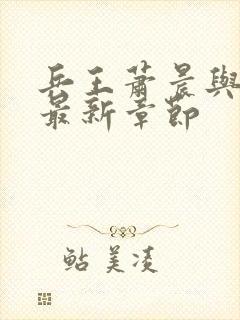 兵王蕭晨與
最新章節
鲇美凌